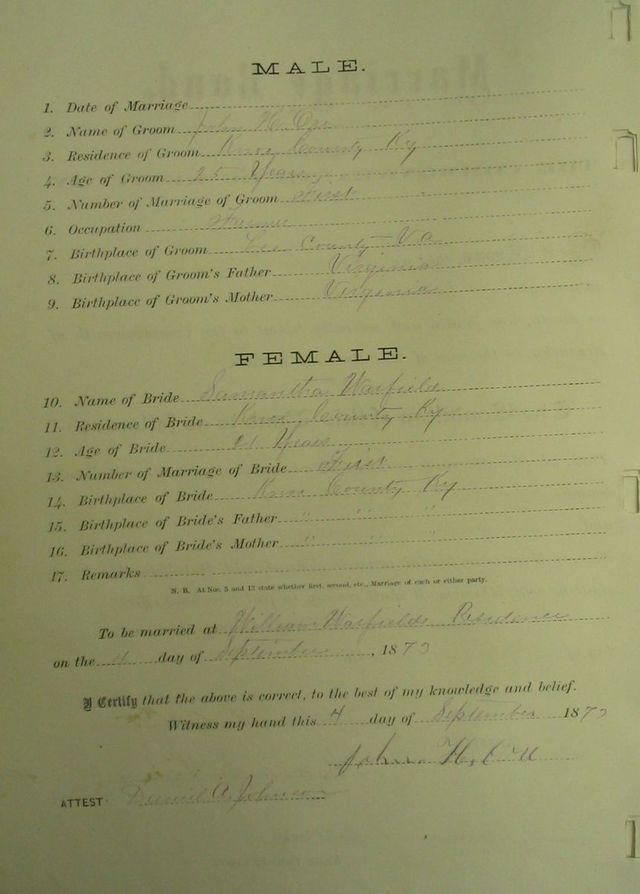 MALE.
1. Date of Marriage
2. Name of Groom John H.
3. Residence of Groom Knox County Ky
4. Age of Groom 25 Years
5. Number of Marriage of Groom First
6. Occupation Farmer
7. Birthplace of Groom Lee County Va
8. Birthplace of Groom's Father Virginia
9. Birthplace of Groom's Mother Virginia
FEMALE.
10. Name of Bride Samantha Warfield
11. Residence of Bride Knox County Ky
12. Age of Bride 21 Years
13. Number of Marriage of Bride First
14. Birthplace of Bride Knox County Ky
15. Birthplace of Bride's Father " " "
16. Birthplace of Bride's Mother " " "
17. Remarks
N. B. At Nos. 5 and 13 state whether first, second, etc., Marriage of each or either party.
To be married at William Warfields Residence
on the 4 day of September, 1873
I Certify that the above is correct, to the best of my knowledge and belief.
Witness my hand this 4 day of September 1873
John H.
ATTEST A. Johnson